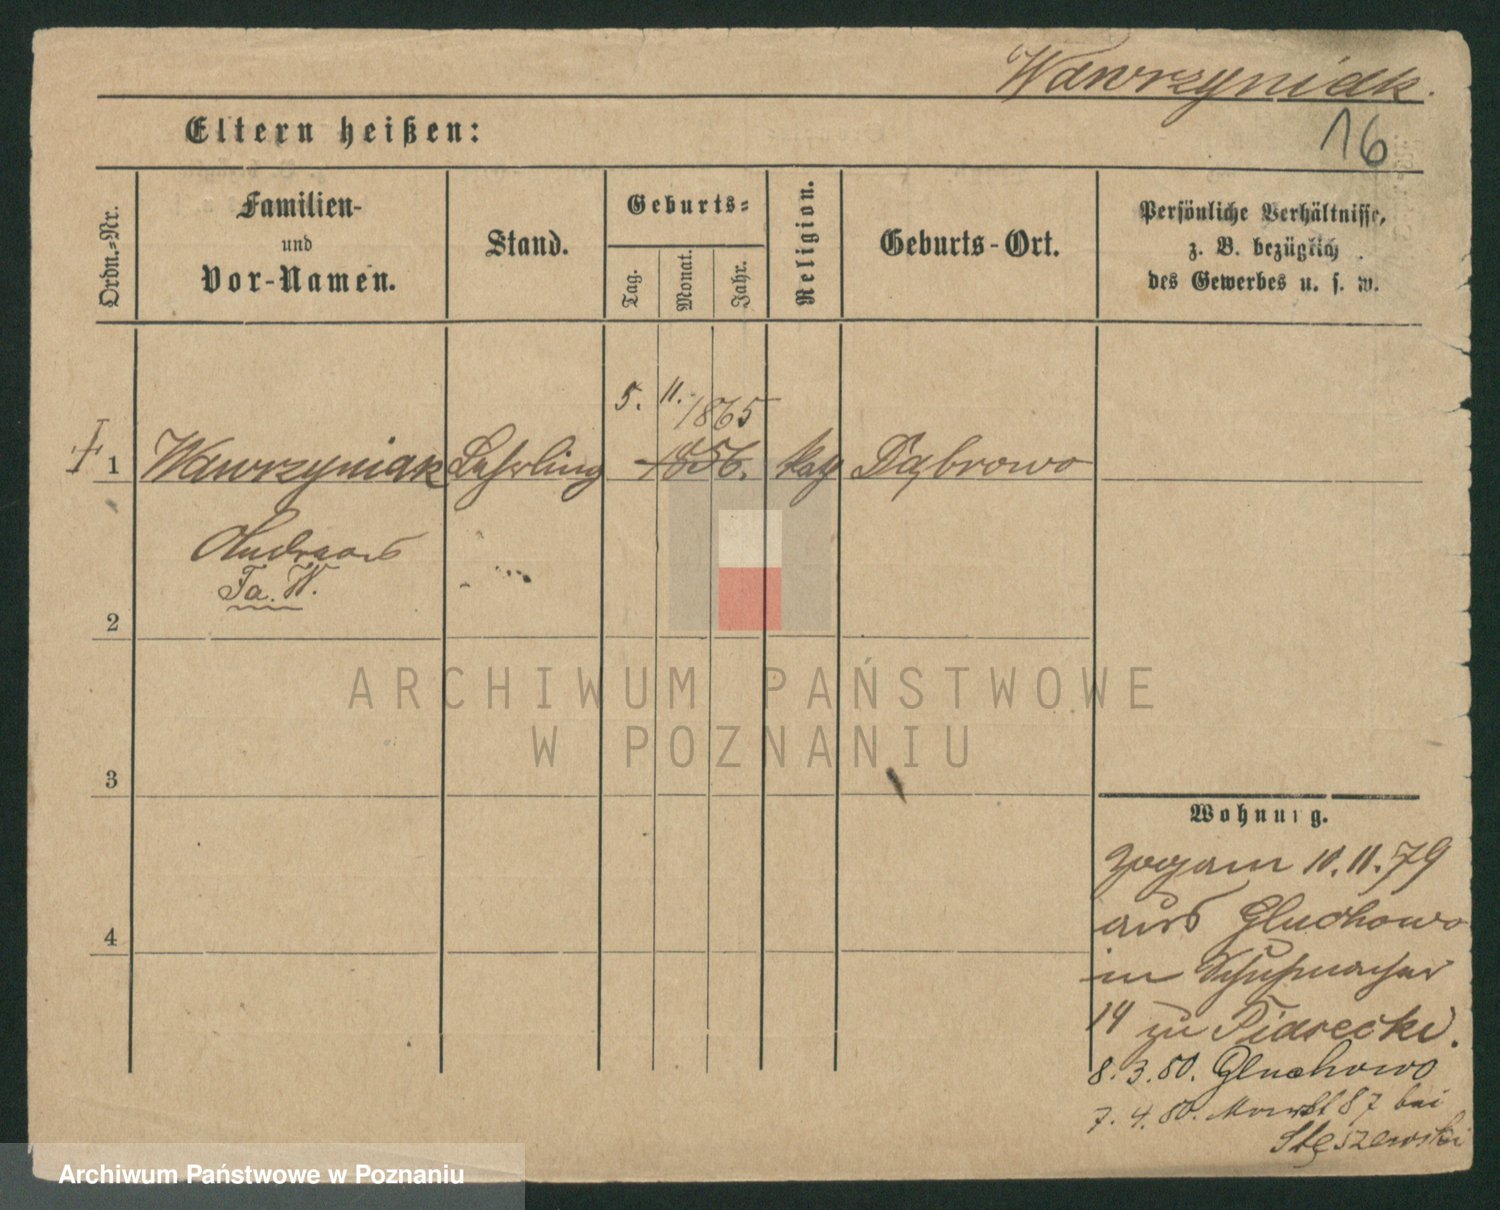 Wawrzyniak.
16
Eltern heißen:
Ordn.-Nr.
Familien-
und
Vor-Namen.
Stand.
Geburts-
Tag.
Monat.
Jahr.
Religion.
Geburts-Ort.
Persönliche Verhältnisse,
z. B. bezüglich
des Gewerbes u. s. w.
5. 11. 1865
1 Wawrzyniak Lehrling 1856. kath Dąbrowo
Andreas
2
3
4
ARCHIWUM PAŃSTWOWE
W POZNANIU
Wohnung.
zog am 10.11.79
aus Gluchowo
in Schuhmacher
14 zu Piasecki.
8.3.80. Gluchowo
7.4.80. 87 bei
Stęszewski
Archiwum Państwowe w Poznaniu